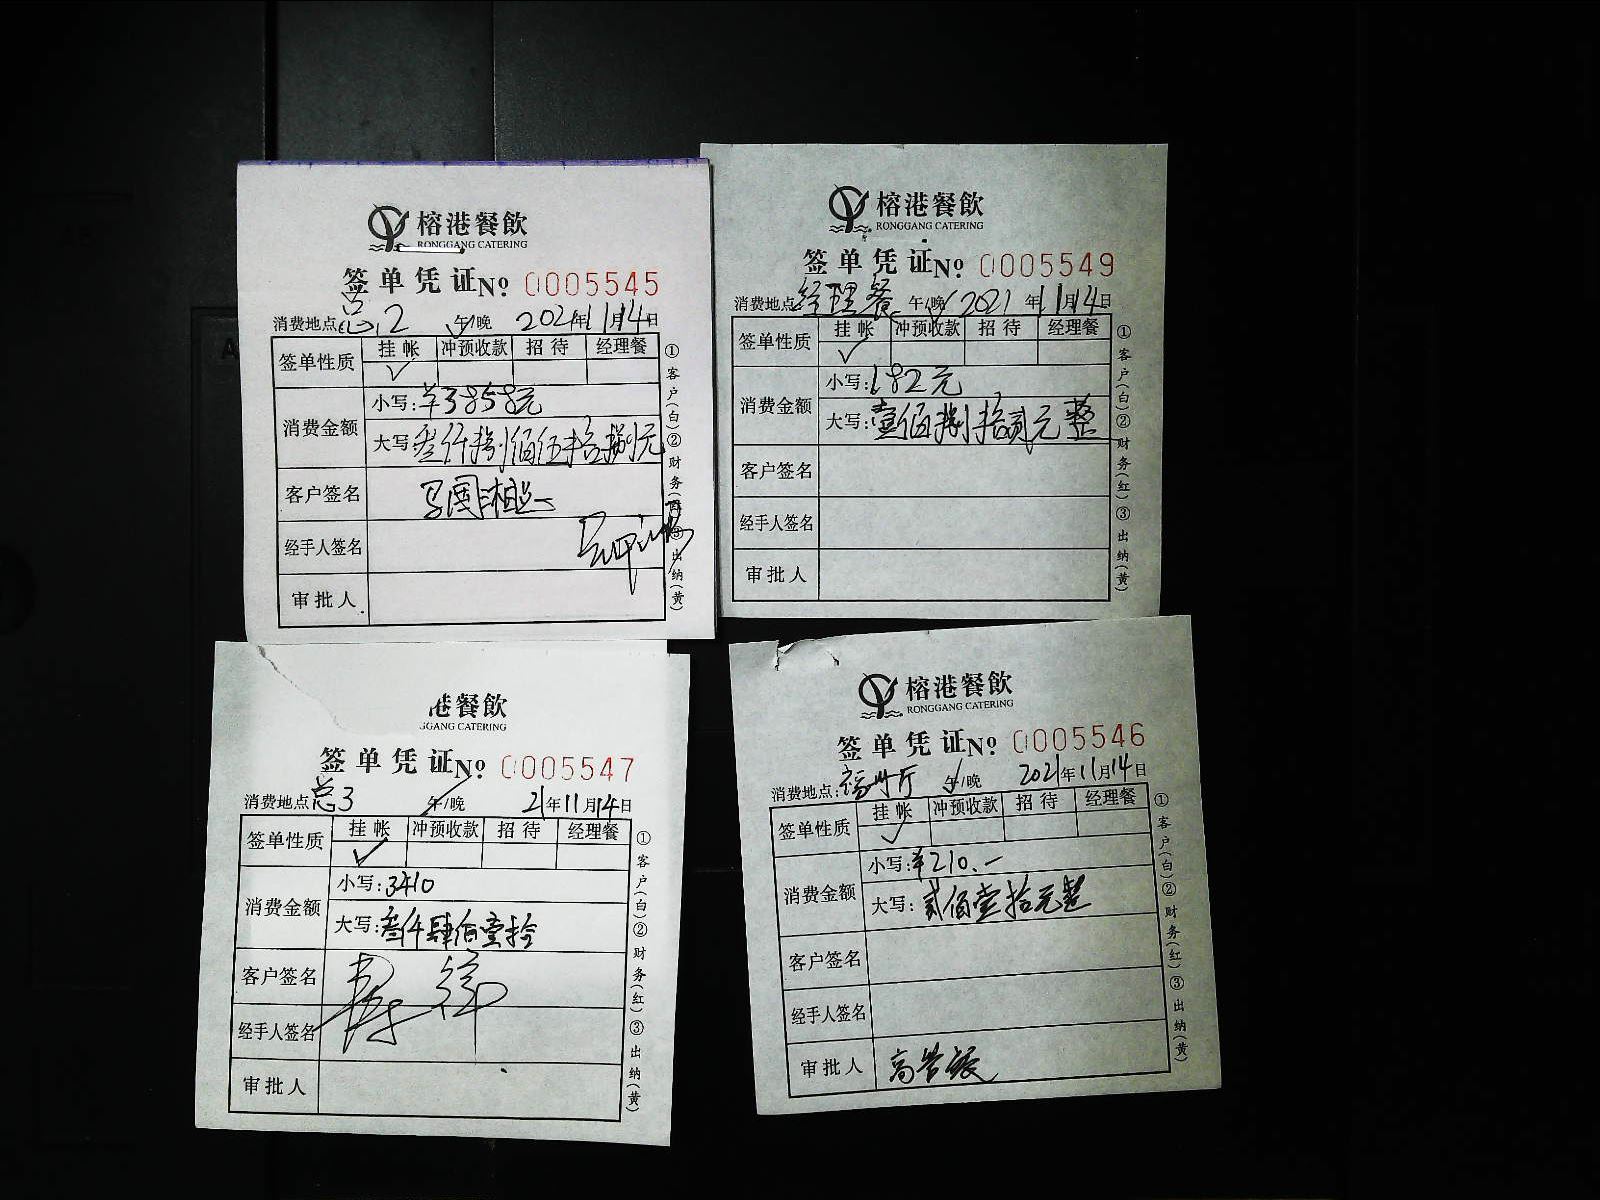 榕港餐飲
RONGGANG CATERING
签单凭证 Nº 0005545
消费地点 总2 午/晚 2021年11月14日
签单性质 挂帐 冲预收款 招待 经理餐
✓
消费金额 小写:¥3858元
大写 叁仟捌佰伍拾捌元
客户签名
经手人签名
审批人
①客户(白)②财务(红)③出纳(黄)
榕港餐飲
RONGGANG CATERING
签单凭证 Nº 0005549
消费地点 经理餐 午/晚 2021年11月14日
签单性质 挂帐 冲预收款 招待 经理餐
✓
消费金额 小写:182元
大写:壹佰捌拾贰元整
客户签名
经手人签名
审批人
①客户(白)②财务(红)③出纳(黄)
港餐飲
GGANG CATERING
签单凭证 Nº 0005547
消费地点 总3 午/晚 21年11月14日
签单性质 挂帐 冲预收款 招待 经理餐
✓
消费金额 小写:3410
大写:叁仟肆佰壹拾
客户签名
经手人签名
审批人
①客户(白)②财务(红)③出纳(黄)
榕港餐飲
RONGGANG CATERING
签单凭证 Nº 0005546
消费地点:福州厅 午/晚 2021年11月14日
签单性质 挂帐 冲预收款 招待 经理餐
✓
消费金额 小写:¥210.一
大写:贰佰壹拾元整
客户签名
经手人签名
审批人
①客户(白)②财务(红)③出纳(黄)